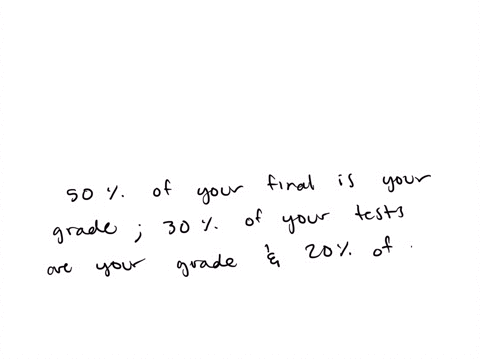 50 % of your final is your
grade ; 30 % of your tests
are your grade & 20% of .